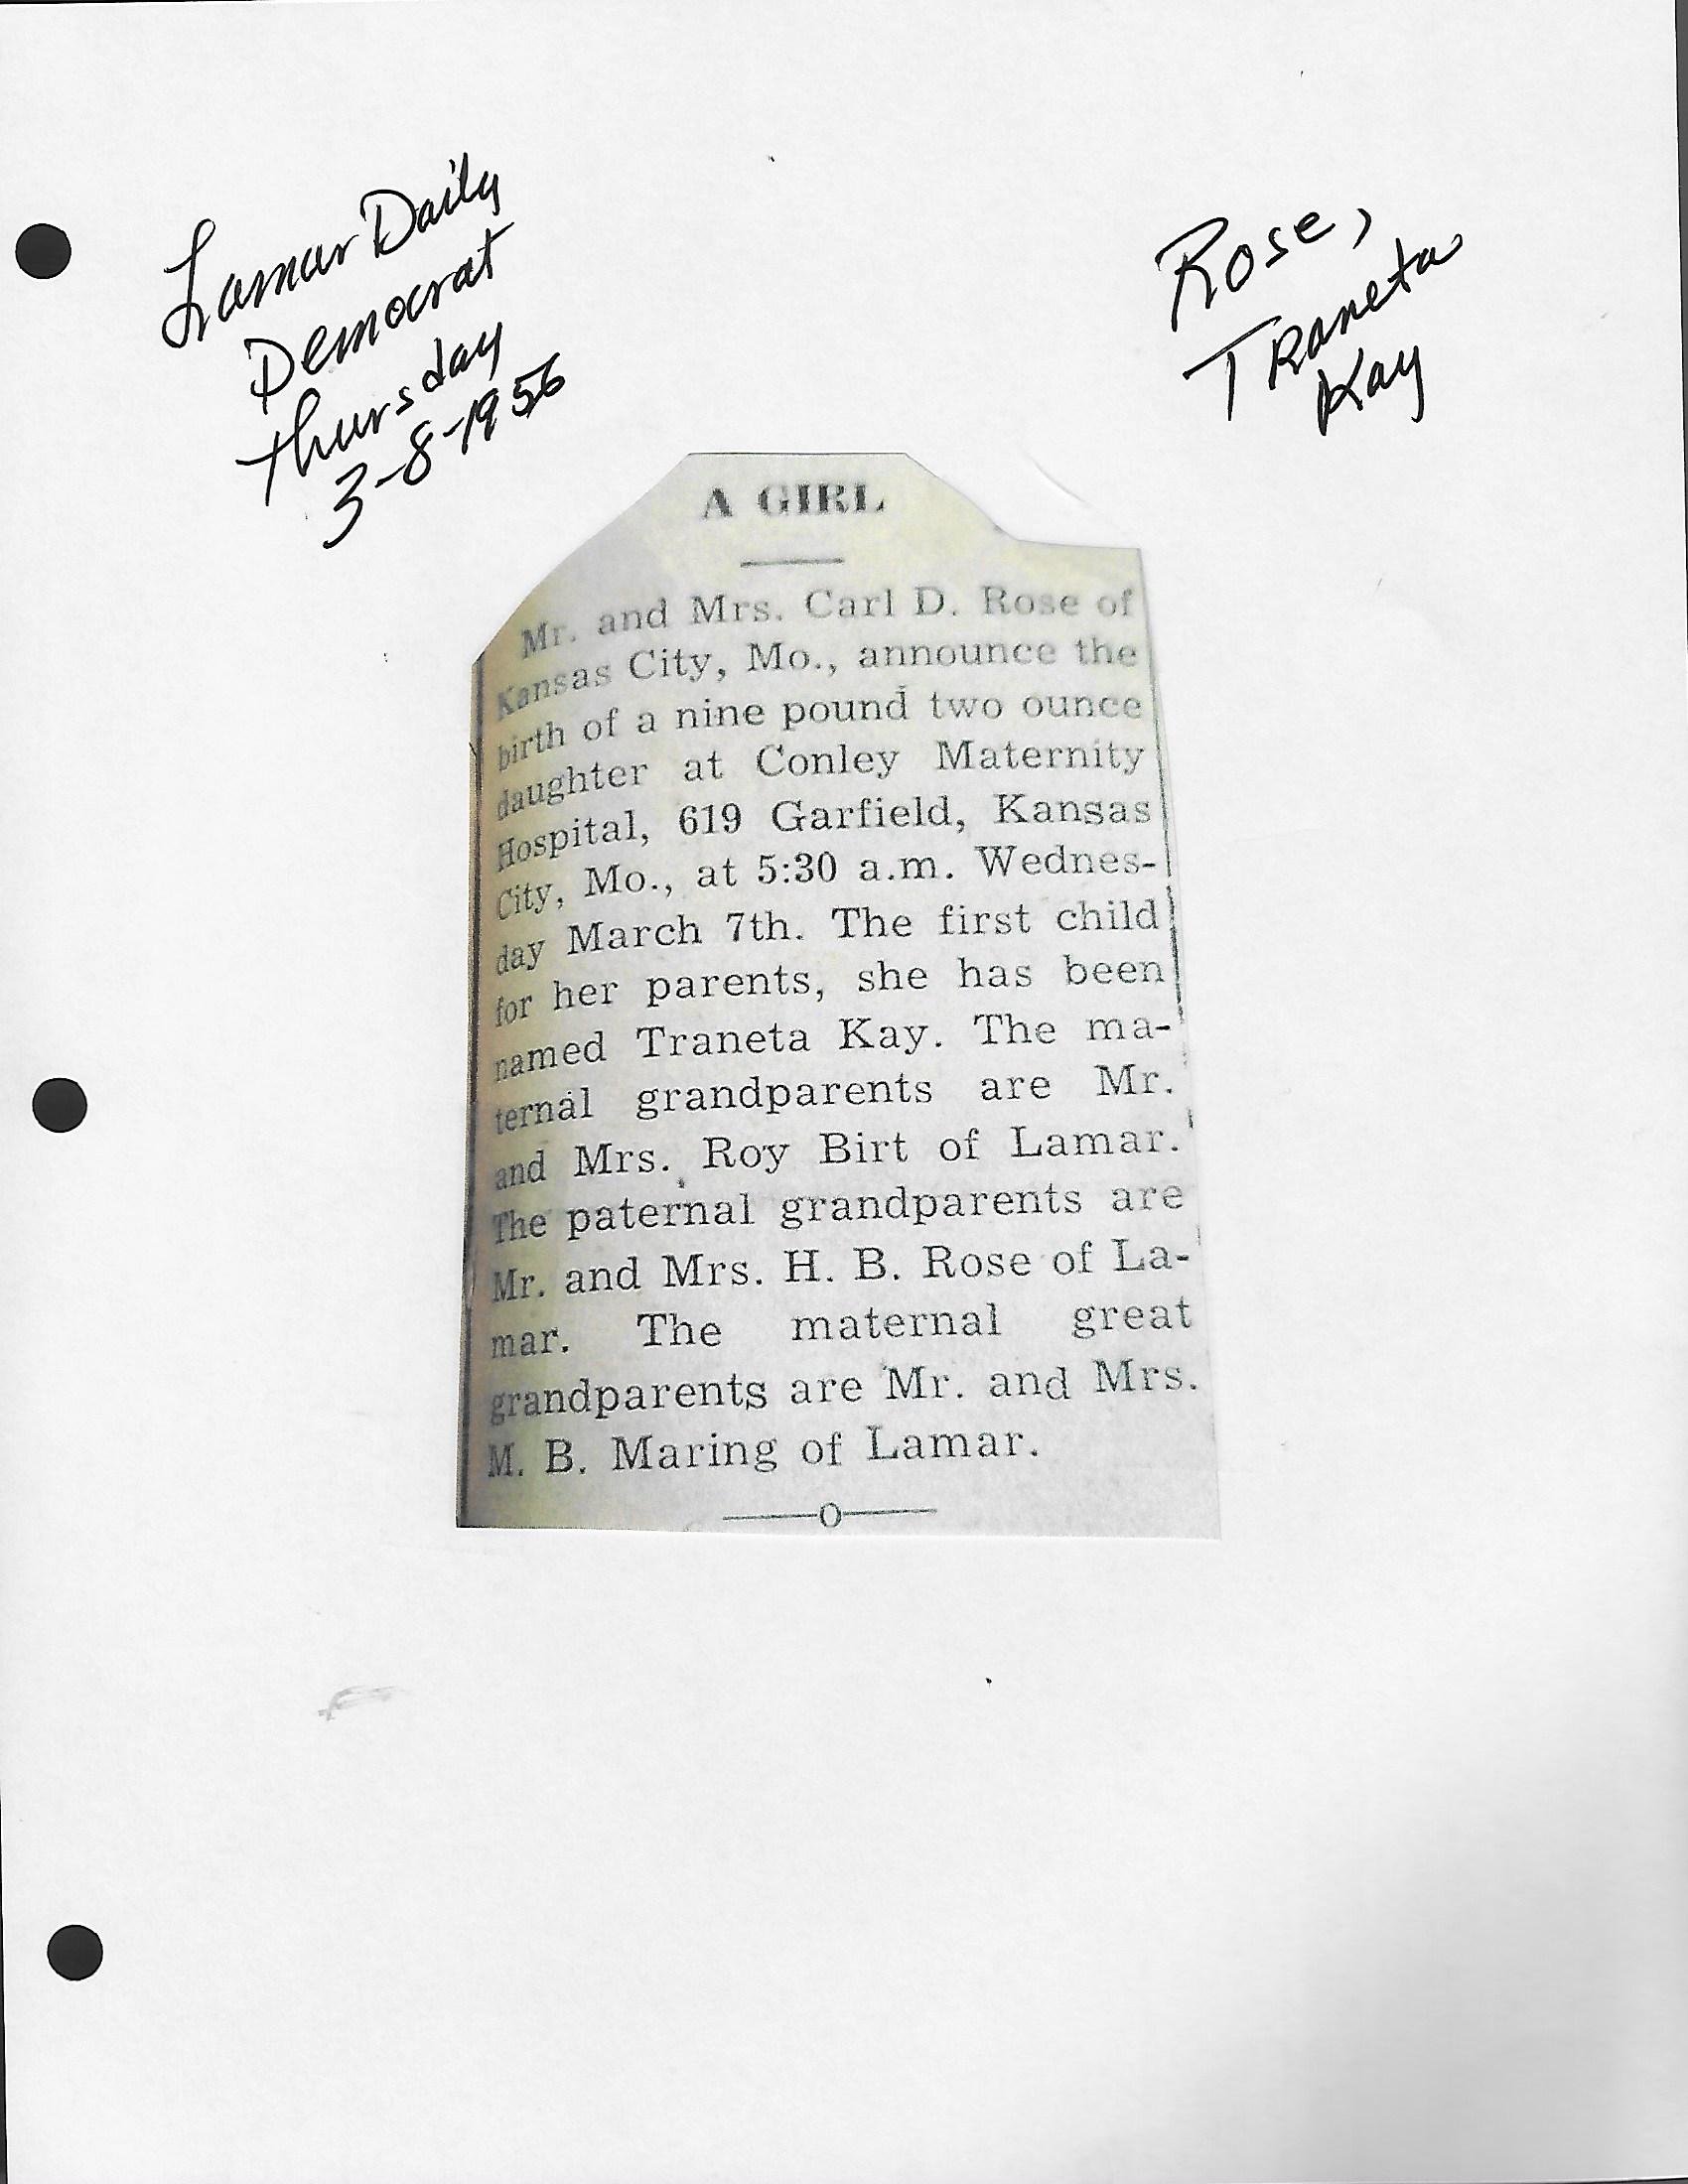 Lamar Daily
Democrat
Thursday
3-8-1956
Rose,
Traneta
Kay
A GIRL
Mr. and Mrs. Carl D. Rose of
Kansas City, Mo., announce the
birth of a nine pound two ounce
daughter at Conley Maternity
Hospital, 619 Garfield, Kansas
City, Mo., at 5:30 a.m. Wednes-
day March 7th. The first child
for her parents, she has been
named Traneta Kay. The ma-
ternal grandparents are Mr.
and Mrs. Roy Birt of Lamar.
The paternal grandparents are
Mr. and Mrs. H. B. Rose of La-
mar. The maternal great
grandparents are Mr. and Mrs.
M. B. Maring of Lamar.